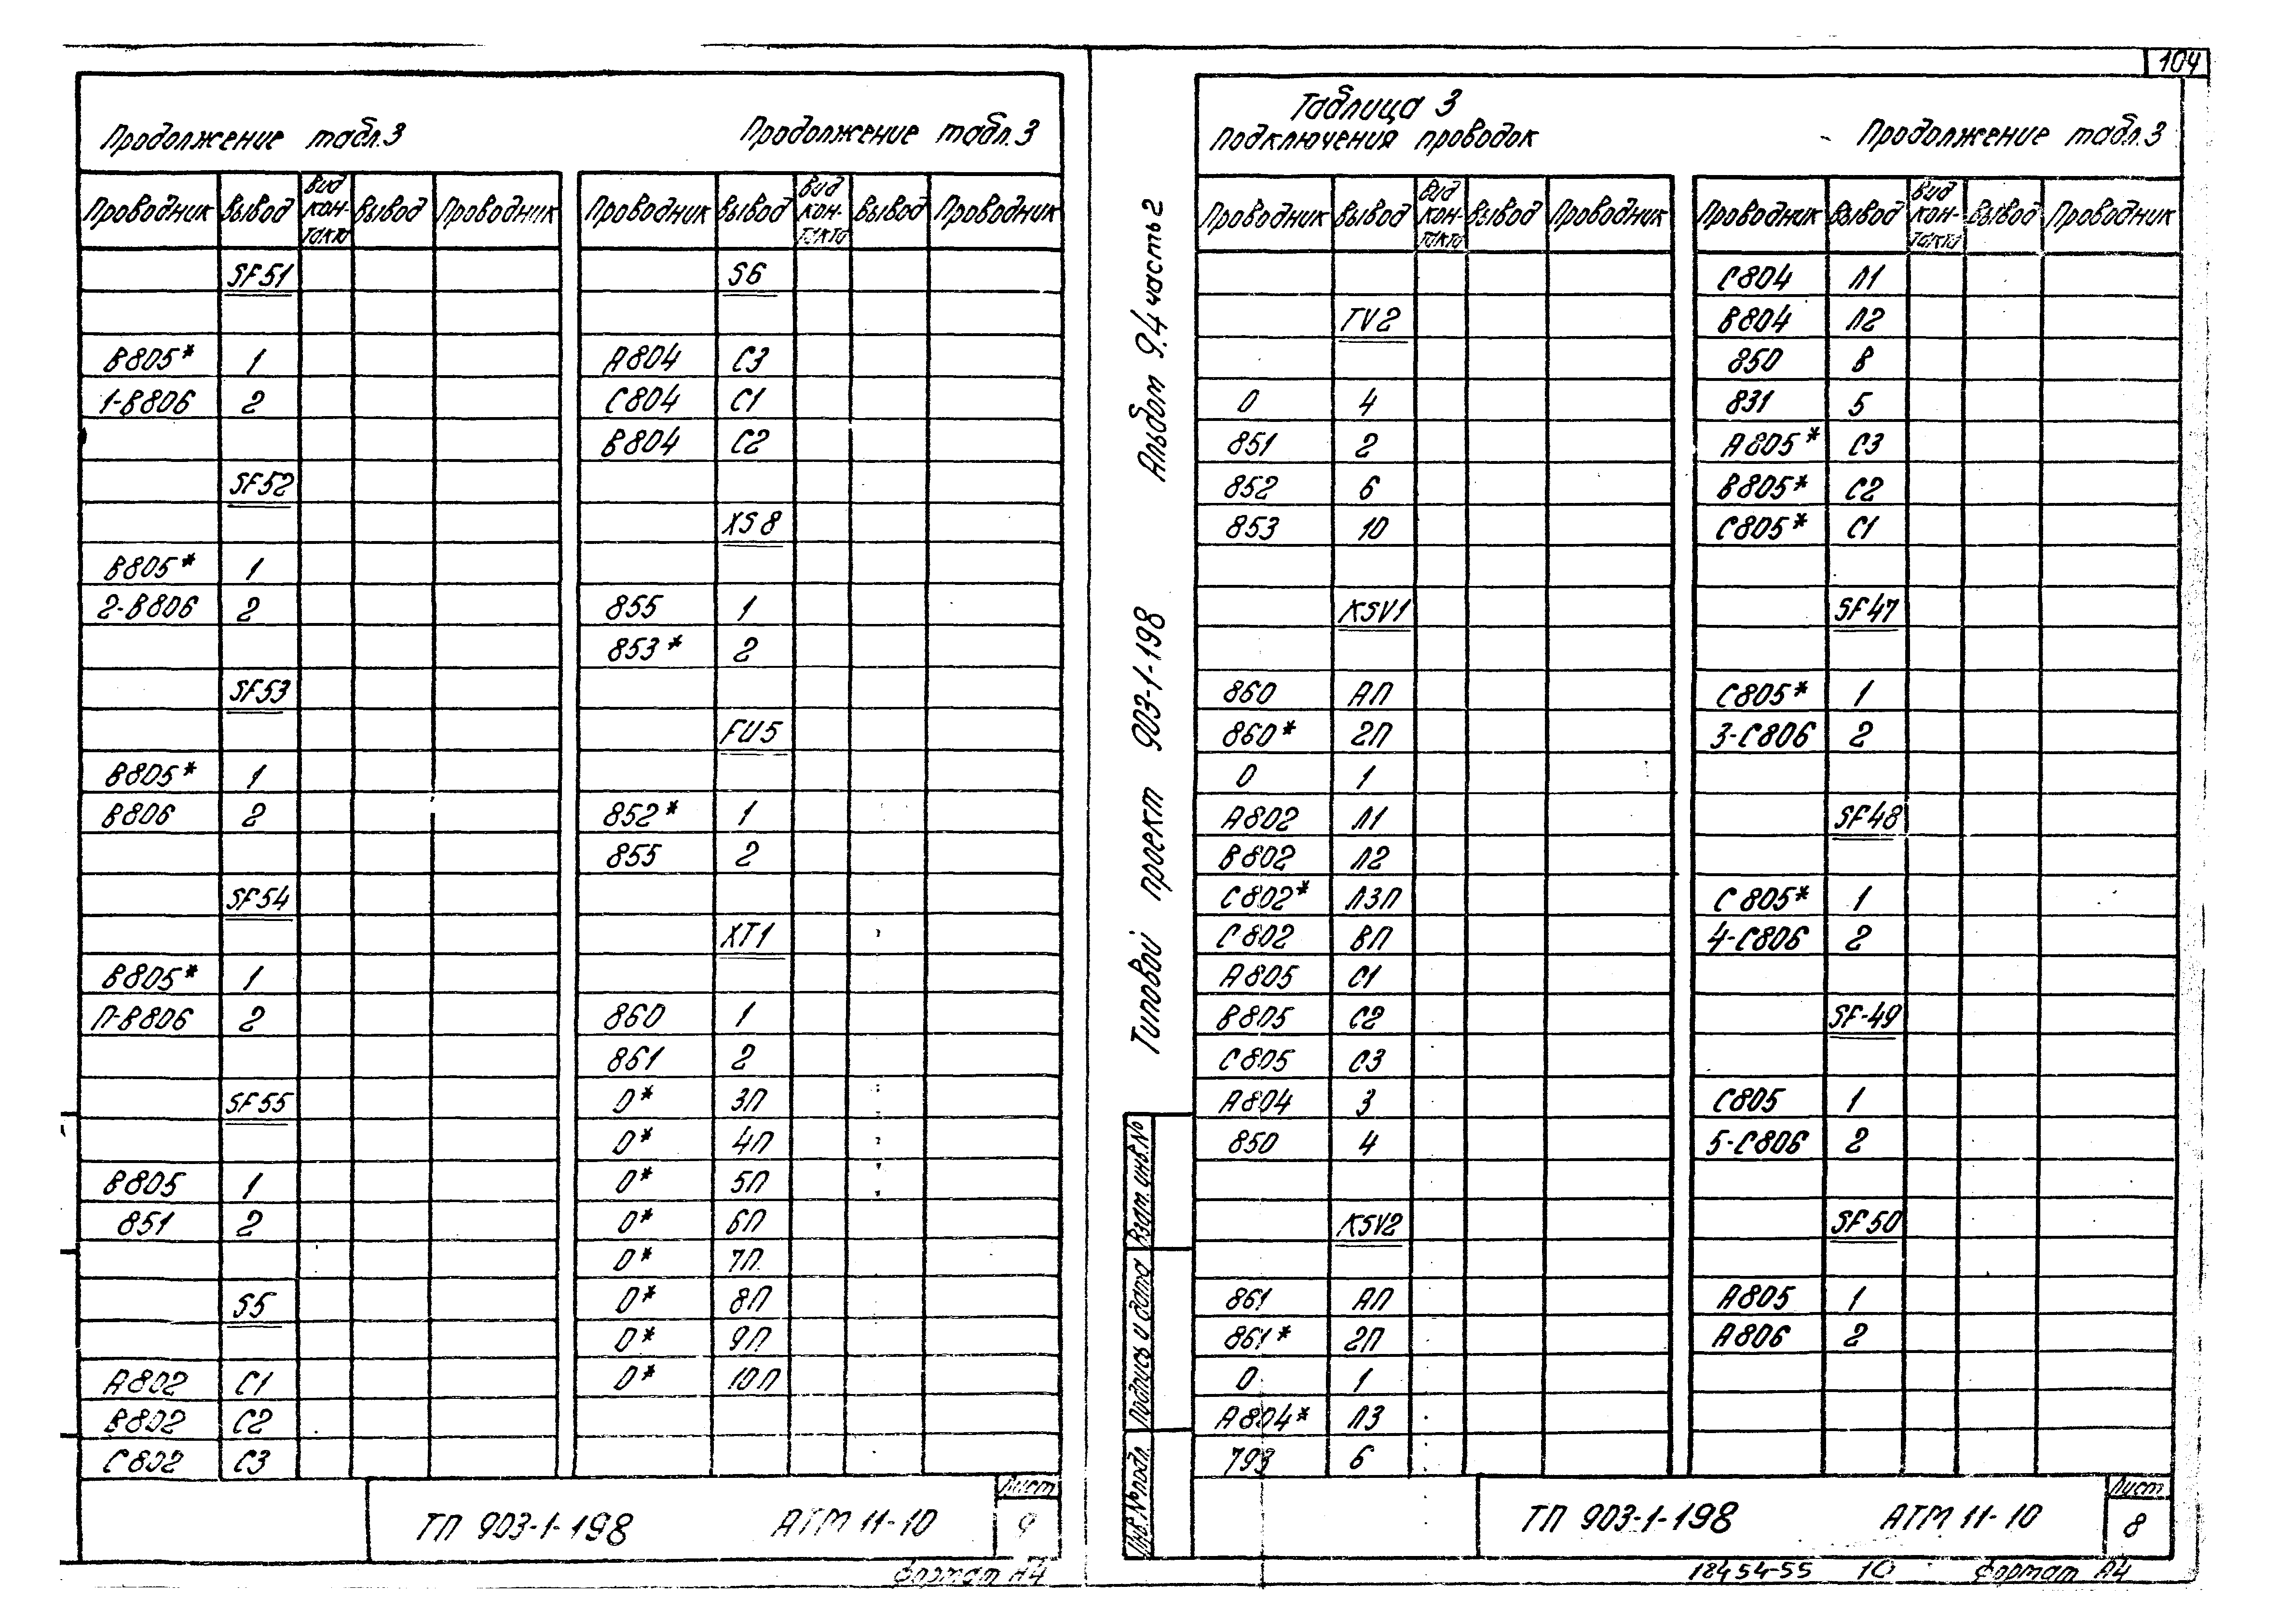 104
Продолжение табл.3
Продолжение табл.3
Проводник Вывод Вид кон- такта Вывод Проводник
SF51
В805* 1
1-В806 2
SF52
В805* 1
2-В806 2
SF53
В805* 1
В806 2
SF54
В805* 1
П-В806 2
SF55
В805 1
851 2
S5
А802 С1
В802 С2
С802 С3
Проводник Вывод Вид кон- такта Вывод Проводник
S6
А804 С3
С804 С1
В804 С2
XS8
855 1
853* 2
FU5
852* 1
855 2
XT1
860 1
861 2
0* 3П
0* 4П
0* 5П
0* 6П
0* 7П
0* 8П
0* 9П
0* 10П
ТП 903-1-198 АТМ 11-10
Лист
9
Формат А4
Типовой проект 903-1-198 Альбом 9.4 часть 2
Взам. инв.№
Подпись и дата
Инв.№ подл.
Таблица 3
Подключения проводок
Продолжение табл.3
Проводник Вывод Вид кон- такта Вывод Проводник
TV2
0 4
851 2
852 6
853 10
KSV1
860 АП
860* 2П
0 1
А802 Л1
В802 Л2
С802* Л3П
С802 ВП
А805 С1
В805 С2
С805 С3
А804 3
850 4
KSV2
861 АП
861* 2П
0 1
А804* Л3
793 6
Проводник Вывод Вид кон- такта Вывод Проводник
С804 Л1
В804 Л2
850 В
831 5
А805* С3
В805* С2
С805* С1
SF47
С805* 1
3-С806 2
SF48
С805* 1
4-С806 2
SF-49
С805 1
5-С806 2
SF50
А805 1
А806 2
ТП 903-1-198 АТМ 11-10
Лист
8
18454-55 10 Формат А4